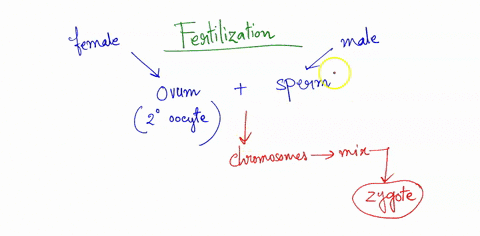 Fertilization
female
male
Ovum + sperm
(2° oocyte)
chromosomes → mix
zygote